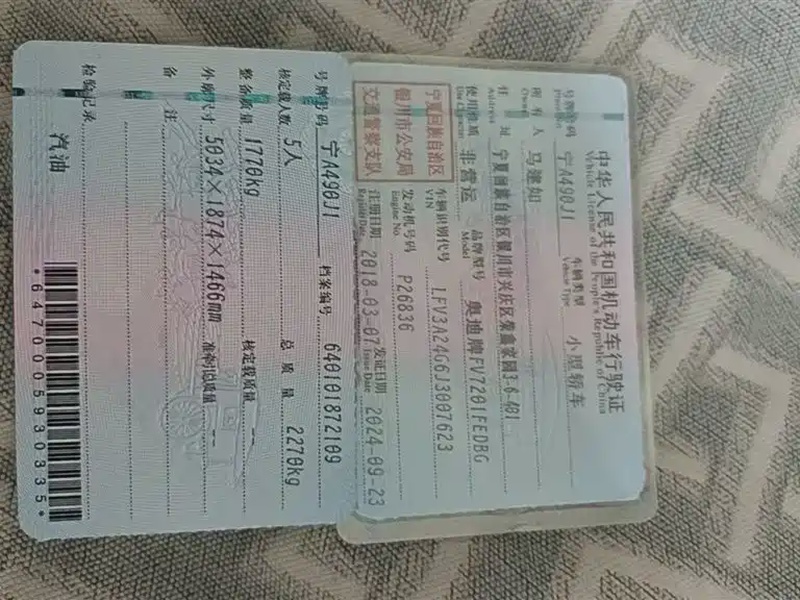 中华人民共和国机动车行驶证
Vehicle License of the People's Republic of China
号牌号码 宁A490J1 车辆类型 小型轿车
Plate No. Vehicle Type
所有人 马建如
Owner
住址 宁夏回族自治区银川市兴庆区紫鑫家园36-401
Address
使用性质 非营运 品牌型号 奥迪牌FV7201FEDBG
Use Character Model
宁夏回族自治区
银川市公安局
交通警察支队
车辆识别代号 LFV3A24G6J3007623
VIN
发动机号码 P26836
Engine No.
注册日期 2018-03-07 发证日期 2024-09-23
Register Date Issue Date
号牌号码 宁A490J1 档案编号 640101872109
核定载人数 5人 总质量 2270kg
整备质量 1770kg 核定载质量 --
外廓尺寸 5034×1874×1466mm 准牵引总质量 --
备注
检验记录
汽油
*6470005930335*